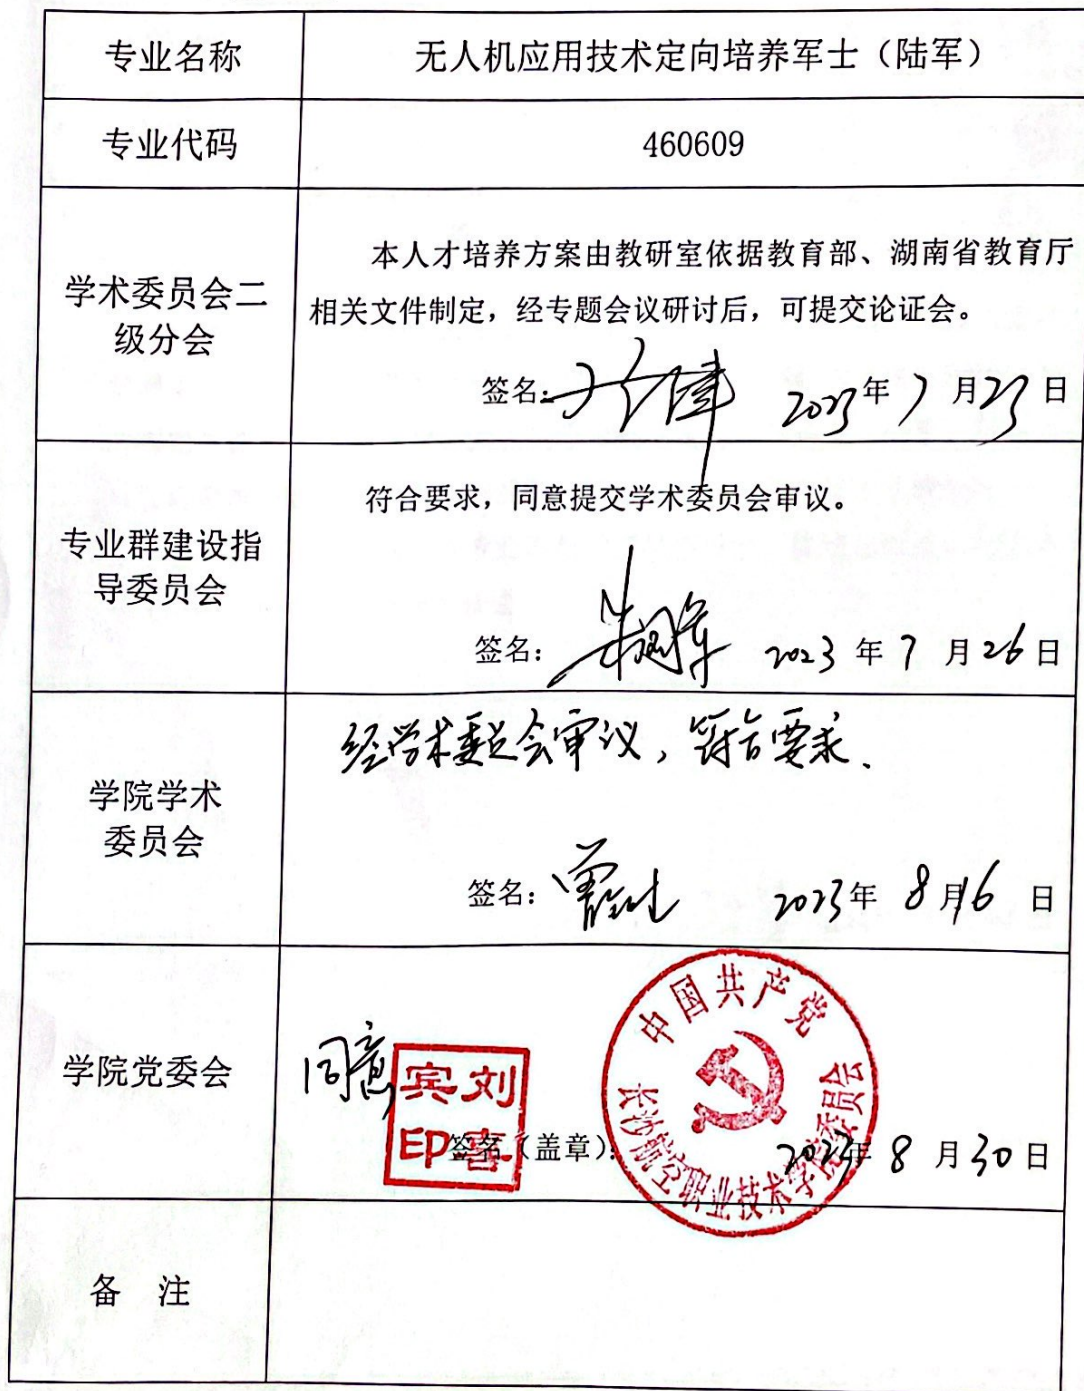 专业名称
无人机应用技术定向培养军士（陆军）
专业代码
460609
学术委员会二
级分会
本人才培养方案由教研室依据教育部、湖南省教育厅
相关文件制定，经专题会议研讨后，可提交论证会。
签名： 2023年7月25日
专业群建设指
导委员会
符合要求，同意提交学术委员会审议。
签名： 2023年7月26日
学院学术
委员会
经学术委员会审议，符合要求.
签名： 2023年8月16日
学院党委会
同意
刘喜宾印
中国共产党
长沙航空职业技术学院委员会
签名（盖章）： 2023年8月30日
备 注